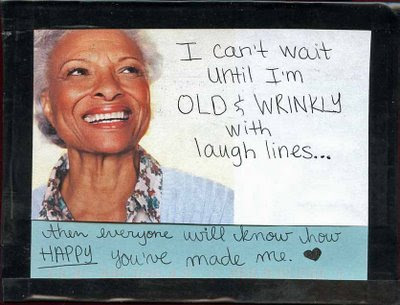 I can't wait
until I'm
OLD & WRINKLY
with
laugh lines...
then everyone will know how
HAPPY you've made me. ♥